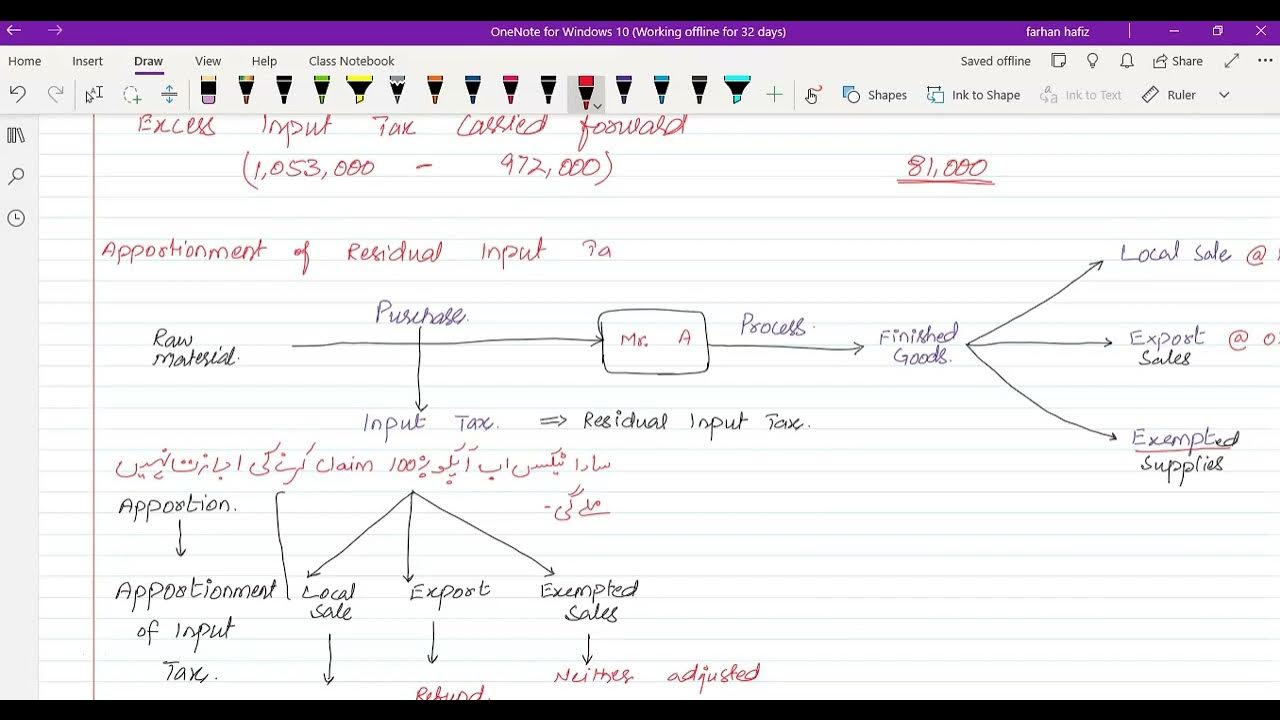 OneNote for Windows 10 (Working offline for 32 days)
farhan hafiz
Home Insert Draw View Help Class Notebook
Saved offline Share
Shapes Ink to Shape Ink to Text Ruler
Excess Input Tax Carried forward
(1,053,000 - 972,000) 81,000
Apportionment of Residual Input Ta
Local Sale @
Purchase.
Raw material.
Mr. A
Process.
Finished Goods.
Export Sales @ 0
Input Tax. ⇒ Residual Input Tax.
Exempted Supplies
سارا ٹیکس اب آپکو 100% claim کرنے کی اجازت نہیں
ملے گی-
Apportion.
Apportionment of Input Tax.
Local Sale
Export
Exempted Sales
Neither adjusted
Refund.